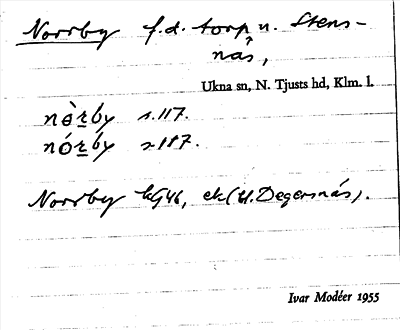 Norrby f.d. torp u. Stens-
näs,
Ukna sn, N. Tjusts hd, Klm. l.
nòrby s.117.
nórby s.187.
Norrby 46, ek (H. Degersnäs).
Ivar Modéer 1955